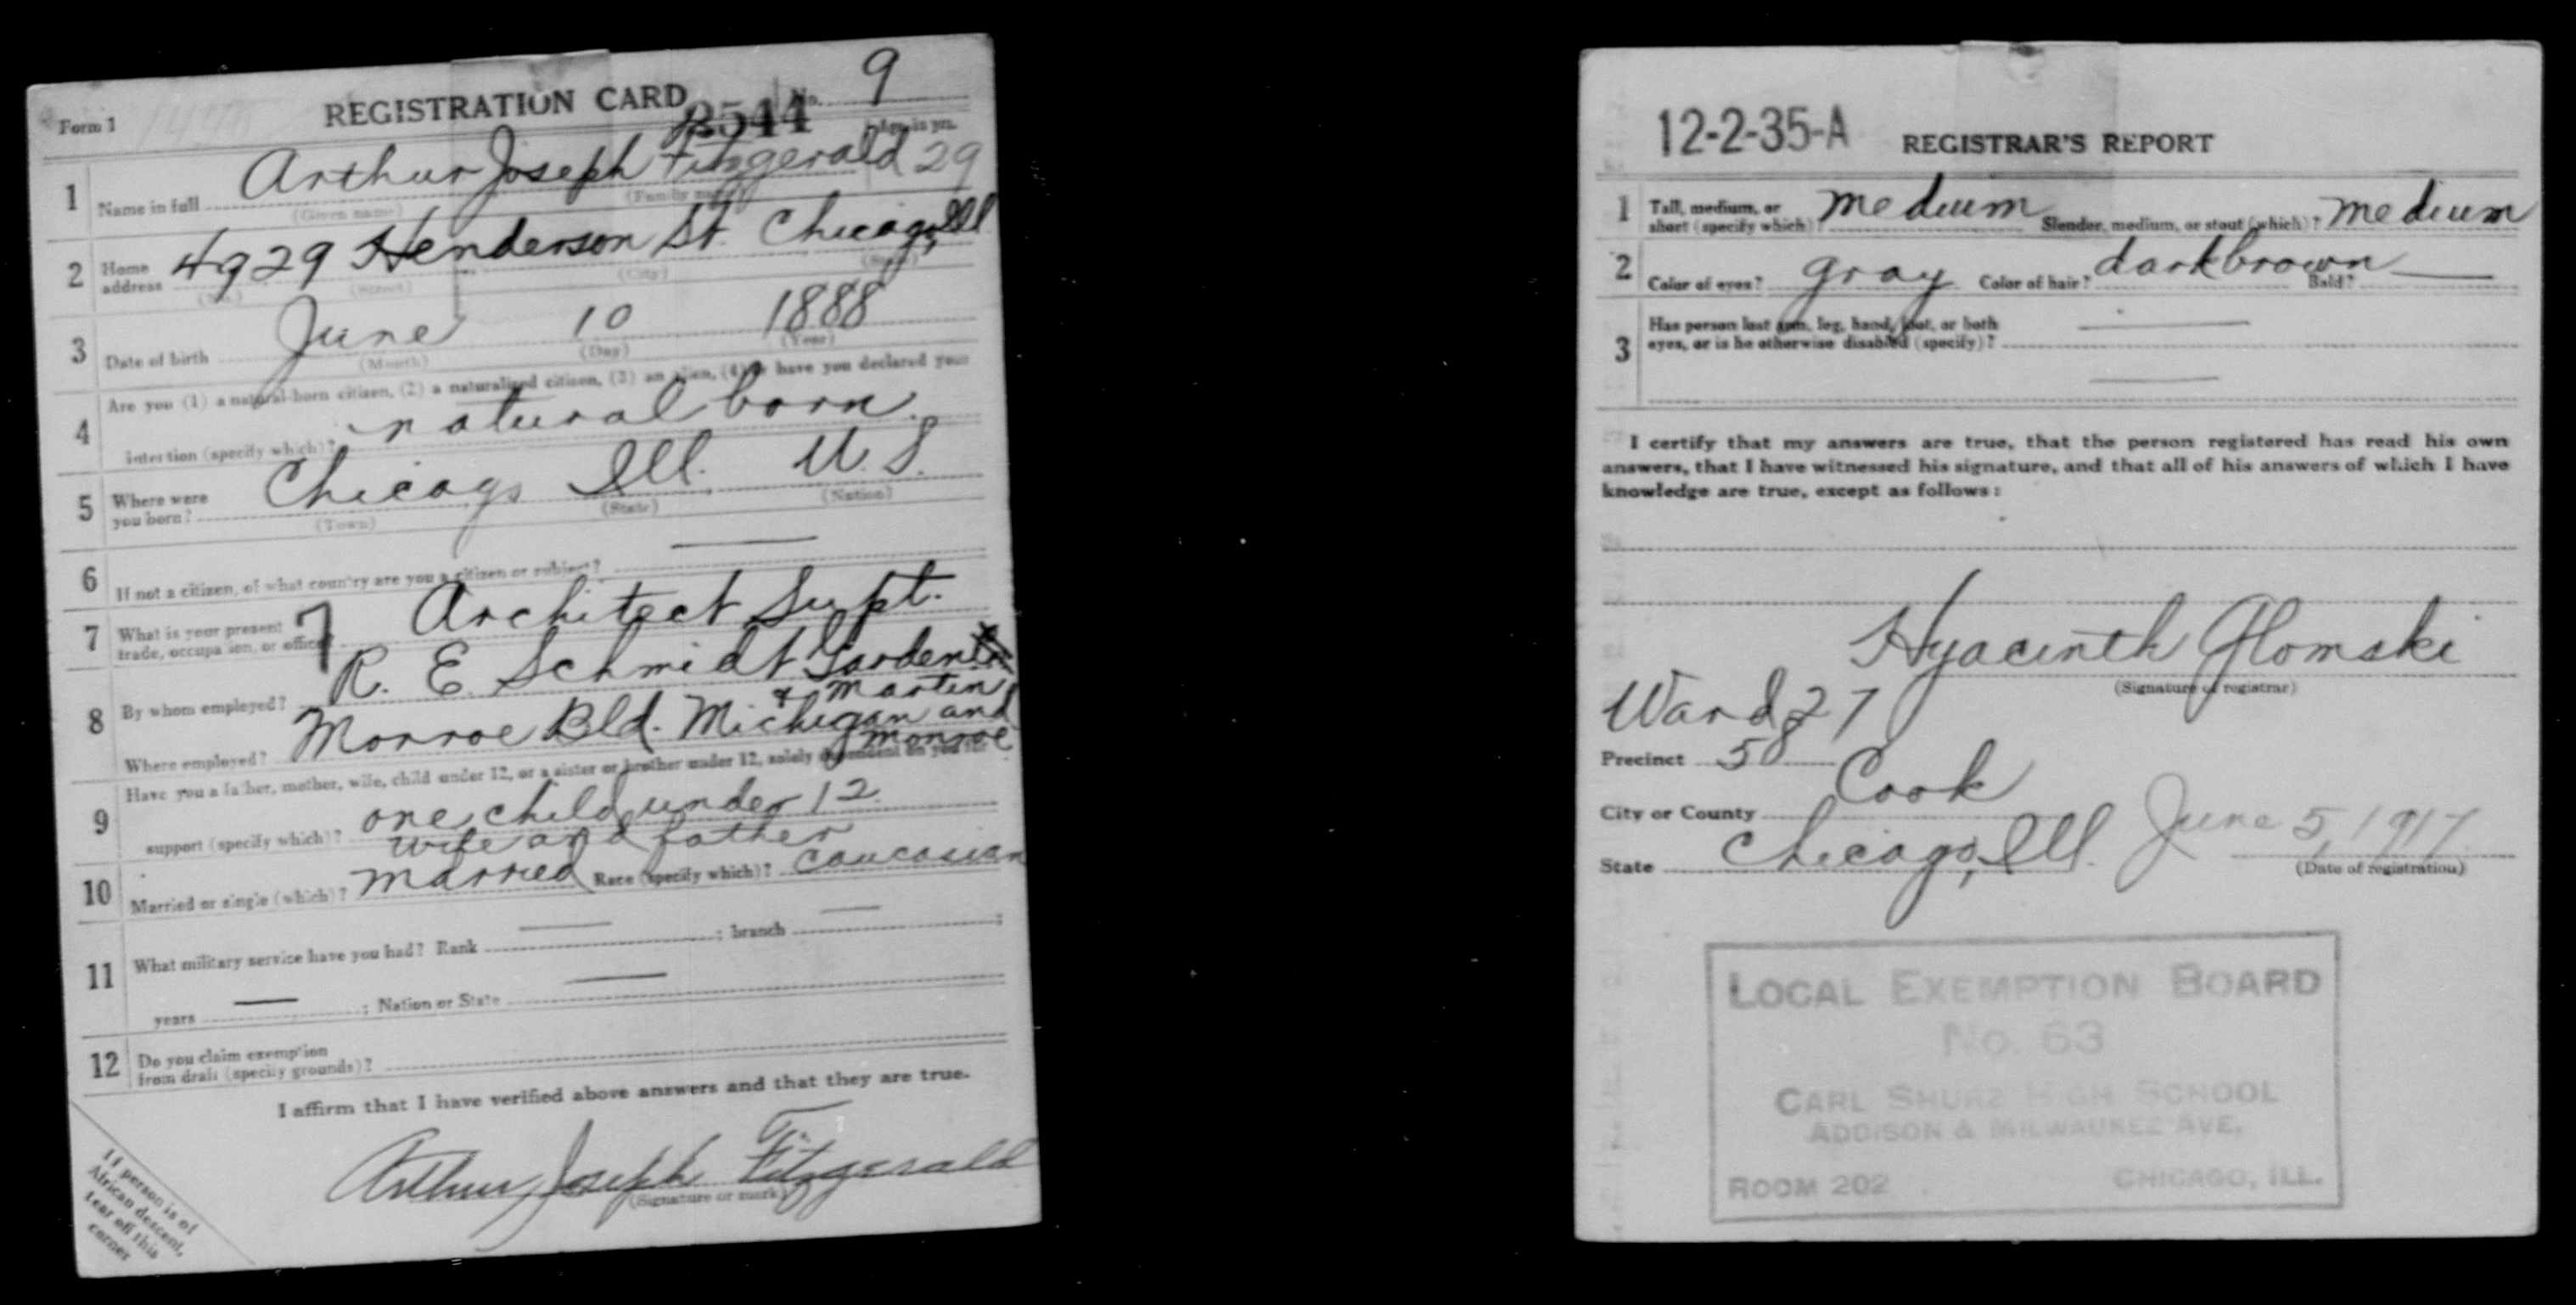 Form 1
REGISTRATION CARD
No. 9
2544
Age, in yrs.
1 Name in full Arthur Joseph Fitzgerald 29
(Given name) (Family name)
2 Home address 4929 Henderson St. Chicago, Ill
(No.) (Street) (City) (State)
3 Date of birth June 10 1888
(Month) (Day) (Year)
Are you (1) a natural-born citizen, (2) a naturalized citizen, (3) an alien, (4) or have you declared your
4 intention (specify which)? natural born.
5 Where were you born? Chicago Ill. U. S.
(Town) (State) (Nation)
6 If not a citizen, of what country are you a citizen or subject? —
7 What is your present trade, occupation, or office? 7 Architect Supt.
8 By whom employed? R. E. Schmidt Garden
& Martin
Where employed? Monroe Bld. Michigan and
Monroe
Have you a father, mother, wife, child under 12, or a sister or brother under 12, solely dependent on you for
9 support (specify which)? one child under 12
wife and father
10 Married or single (which)? married Race (specify which)? Caucasian
11 What military service have you had? Rank — ; branch — ;
years — ; Nation or State —
12 Do you claim exemption
from draft (specify grounds)?
I affirm that I have verified above answers and that they are true.
Arthur Joseph Fitzgerald
(Signature or mark)
If person is of
African descent,
tear off this
corner
12-2-35-A REGISTRAR'S REPORT
1 Tall, medium, or short (specify which)? medium Slender, medium, or stout (which)? medium
2 Color of eyes? gray Color of hair? dark brown Bald? —
3 Has person lost arm, leg, hand, foot, or both
eyes, or is he otherwise disabled (specify)? —
—
I certify that my answers are true, that the person registered has read his own
answers, that I have witnessed his signature, and that all of his answers of which I have
knowledge are true, except as follows:
Hyacinth Glomski
(Signature of registrar)
Ward 27
Precinct 58
City or County Cook
State Chicago, Ill. June 5, 1917
(Date of registration)
LOCAL EXEMPTION BOARD
No. 63
CARL SHURZ HIGH SCHOOL
ADDISON & MILWAUKEE AVE.
ROOM 202 CHICAGO, ILL.